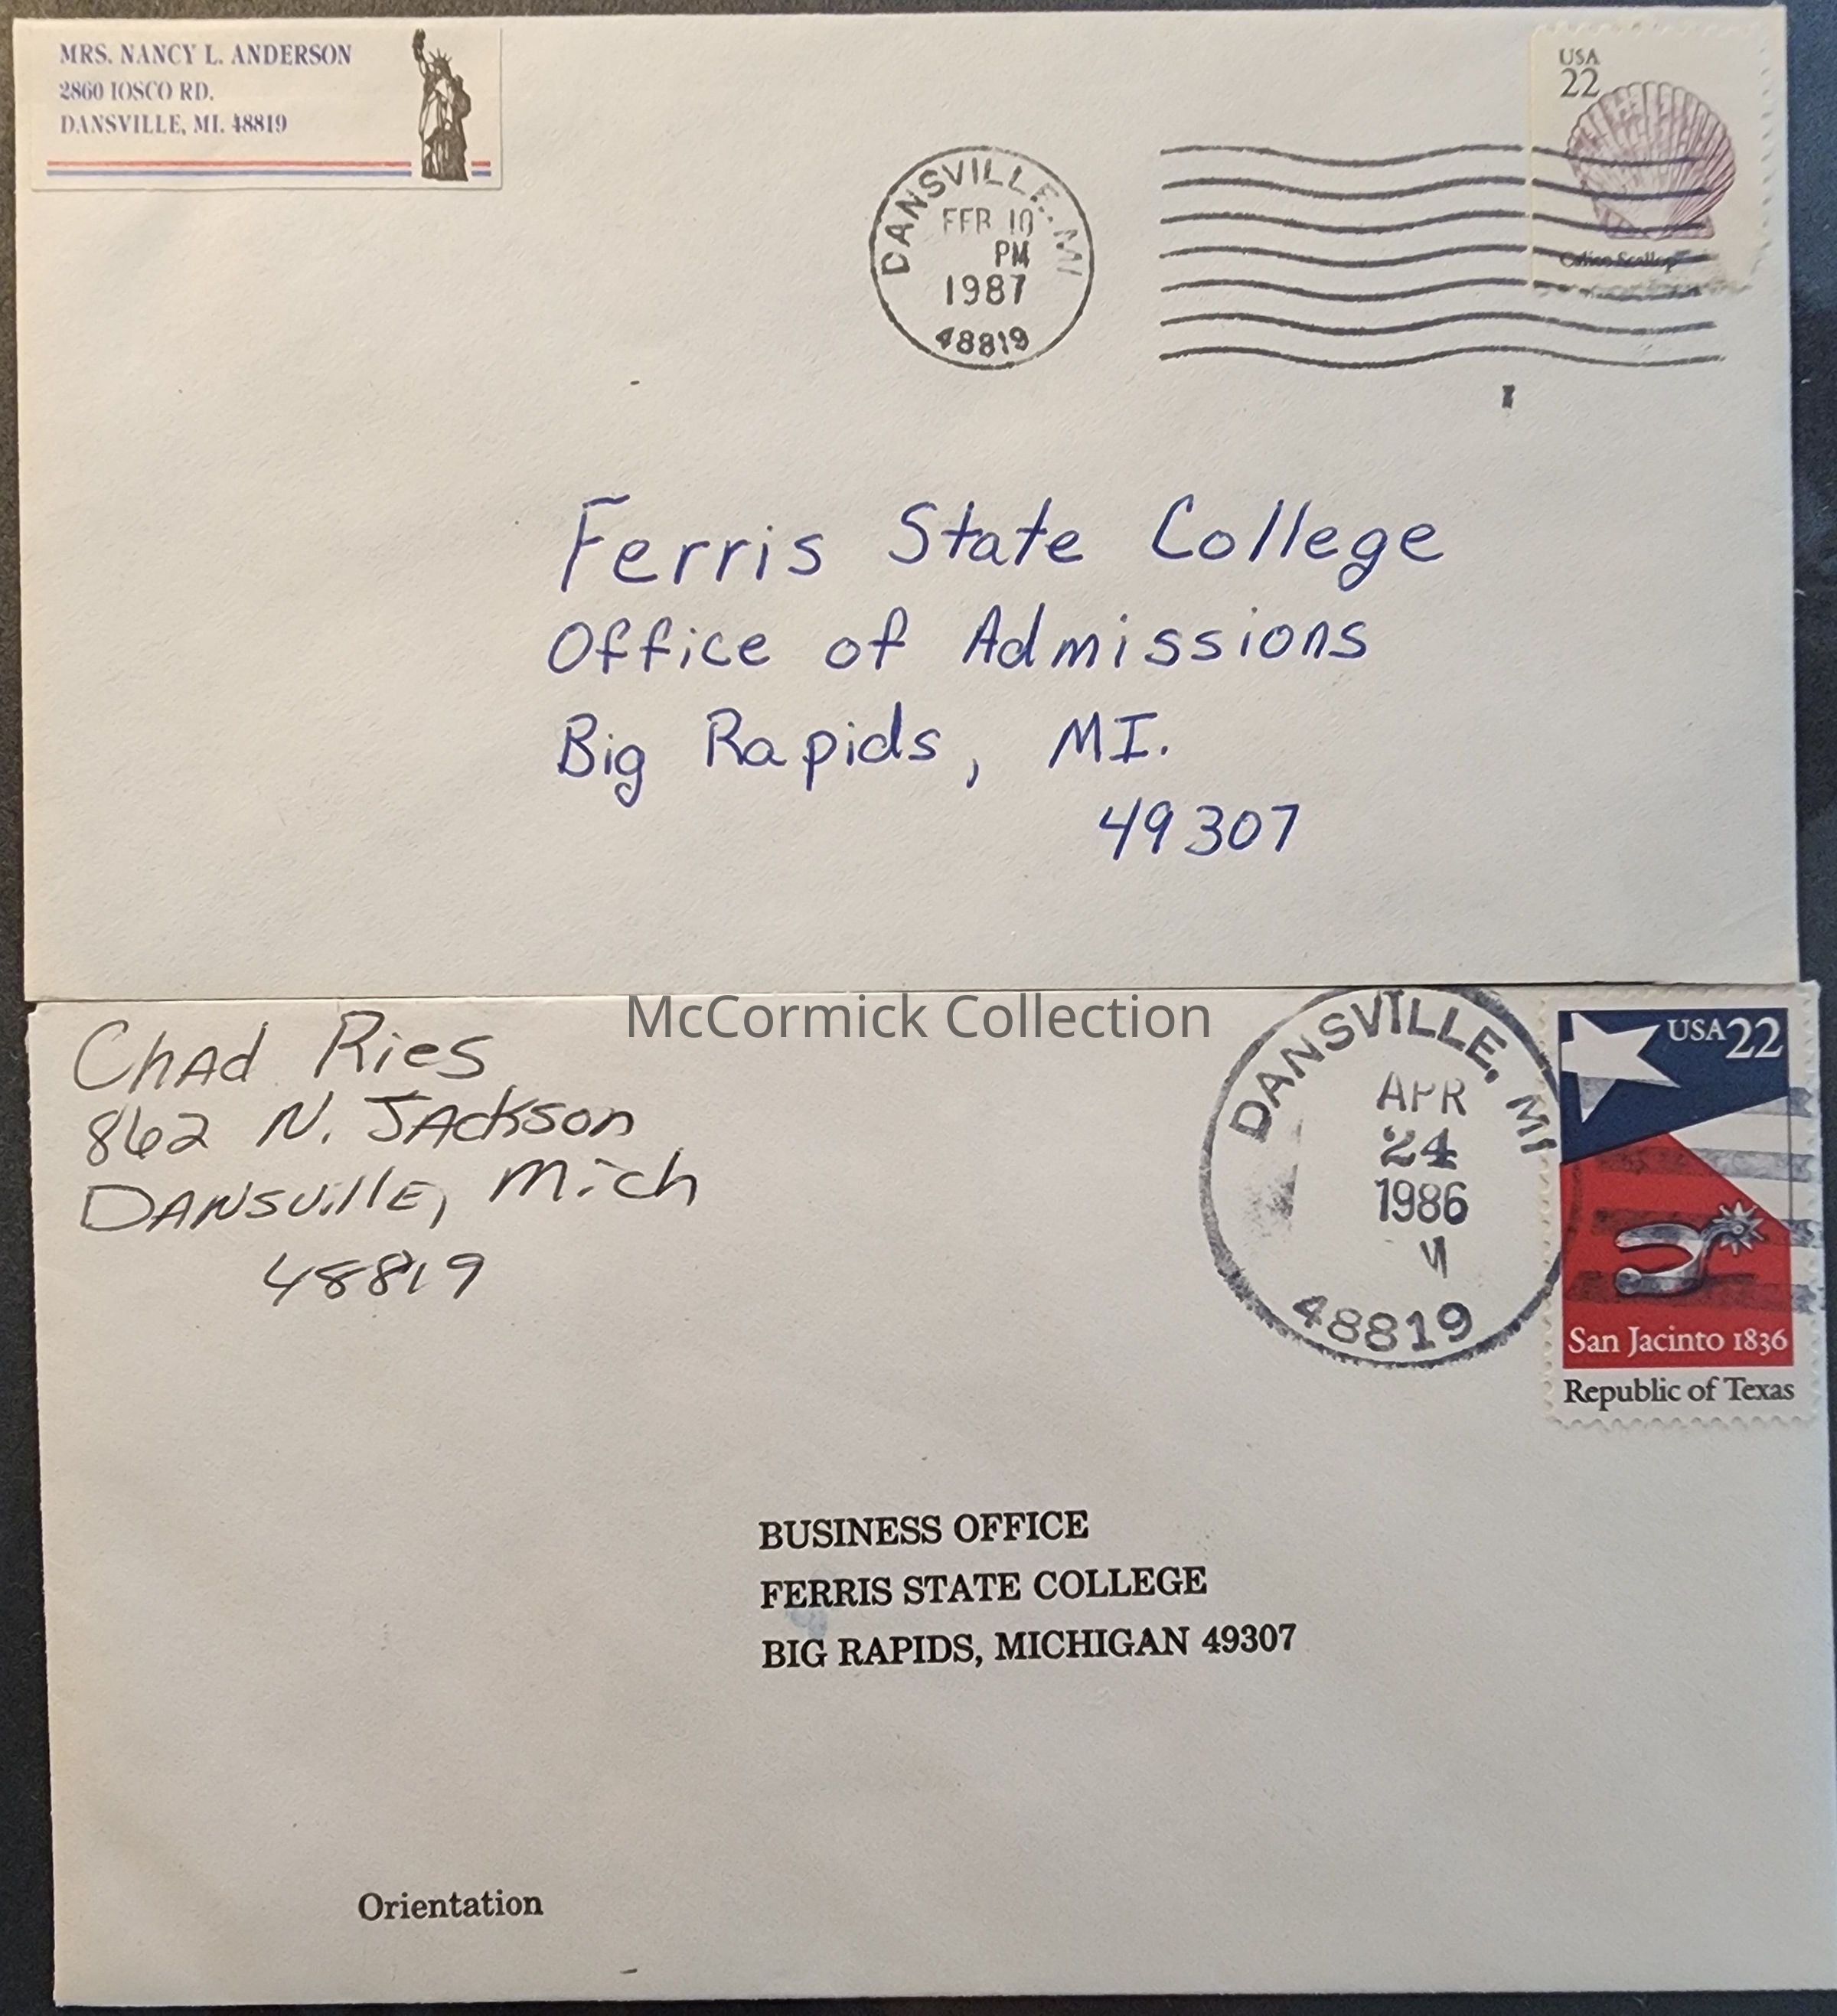 MRS. NANCY L. ANDERSON
2860 IOSCO RD.
DANSVILLE, MI. 48819
USA
22
Calico Scallop
DANSVILLE, MI
FEB 10
PM
1987
48819
Ferris State College
Office of Admissions
Big Rapids, MI.
49307
McCormick Collection
Chad Ries
862 N. Jackson
Dansville, Mich
48819
DANSVILLE, MI
APR
24
1986
48819
USA 22
San Jacinto 1836
Republic of Texas
BUSINESS OFFICE
FERRIS STATE COLLEGE
BIG RAPIDS, MICHIGAN 49307
Orientation